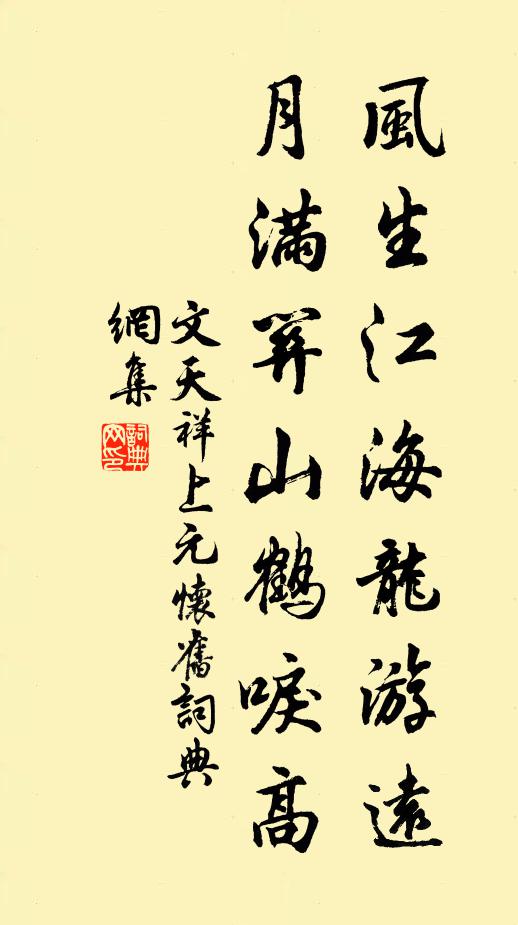 風生江海龍游遠
月滿關山鶴唳高
文天祥上元懷舊詞典
網集
詞典網印